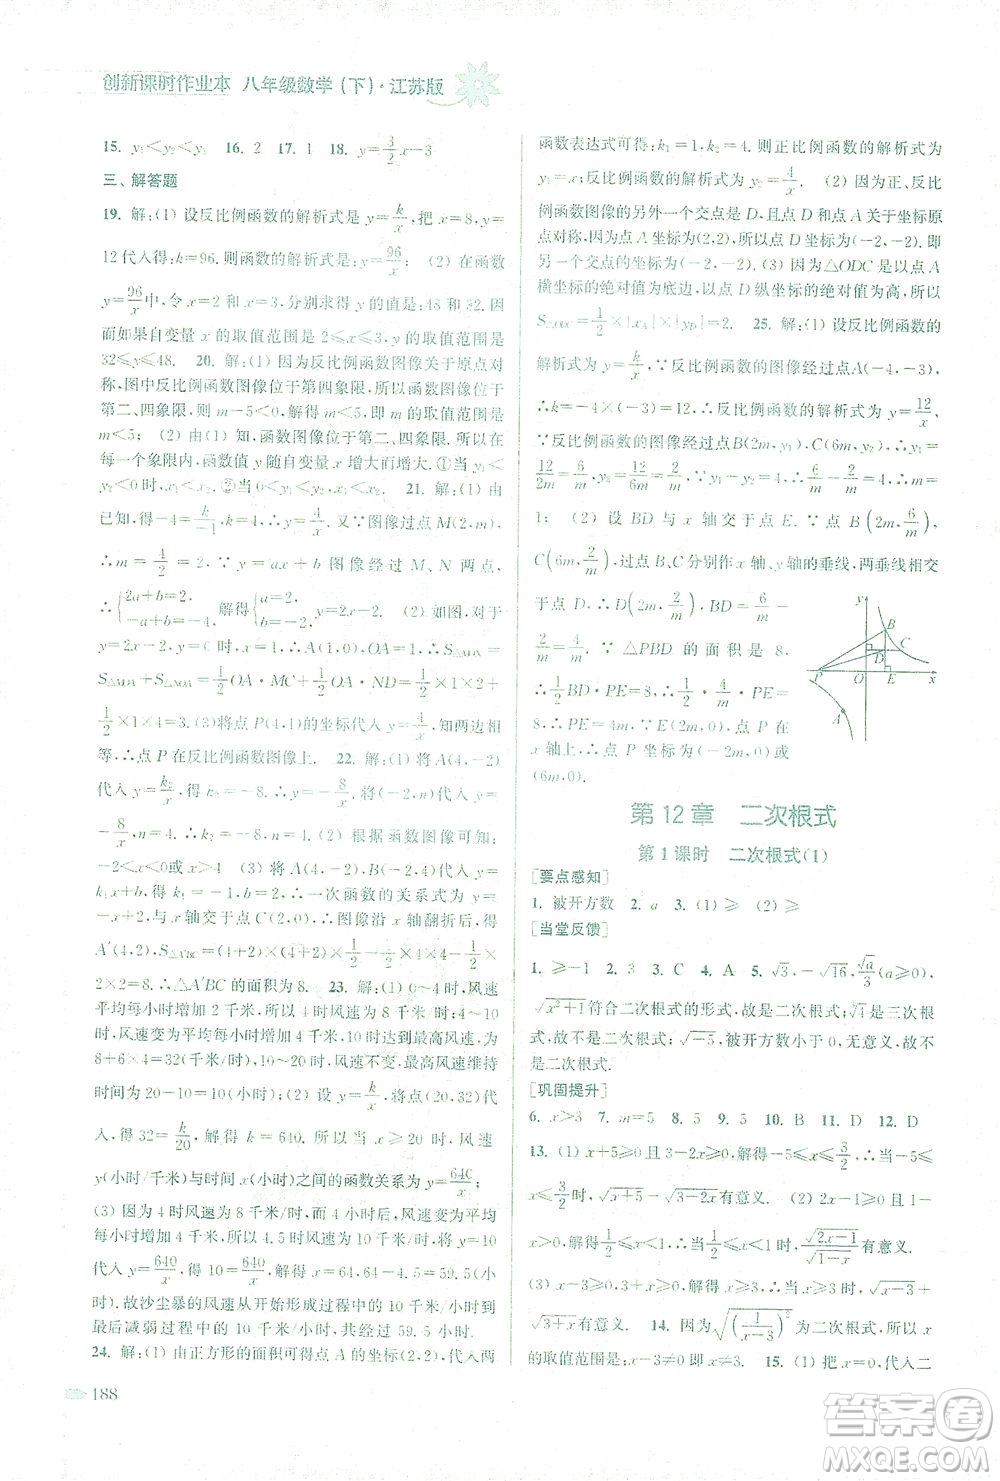 创新课时作业本 八年级数学(下)·江苏版
15. y₁<y₂<y₃ 16. 2 17. 1 18. y=3/2x-3
三、解答题
19. 解:(1) 设反比例函数的解析式是 y=k/x,把 x=8,y=
12代入得:k=96. 则函数的解析式是:y=96/x. (2) 在函数
y=96/x 中,令 x=2和3,分别求得 y 的值是:48 和 32. 因
而如果自变量 x 的取值范围是 2≤x≤3,则 y 的取值范围是
32≤y≤48. 20. 解:(1) 因为反比例函数图像关于原点对
称,图中反比例函数图像位于第四象限,所以函数图像位于
第二、四象限,则 m-5<0,解得 m<5,即 m 的取值范围是
m<5; (2) 由(1) 知,函数图像位于第二、四象限. 所以在
每一个象限内,函数值 y 随自变量 x 增大而增大. ①当 y₁<
y₂<0 时,x₁<x₂. ②当 0<y₁<y₂ 时,x₁<x₂. 21. 解:(1) 由
已知,得-4=k/-1,k=4,∴y=4/x. 又∵图像过点 M(2,m),
∴m=4/2=2. ∵y=ax+b 图像经过 M、N 两点,
∴{2a+b=2, -a+b=-4, 解得{a=2, b=-2, ∴y=2x-2. (2) 如图,对于
y=2x-2,y=0 时,x=1,∴A(1,0),OA=1,∴S△MON=
S△MOA+S△NOA=1/2OA·MC+1/2OA·ND=1/2×1×2+
1/2×1×4=3. (3)将点 P(4,1)的坐标代入 y=4/x,知两边相
等,∴点 P 在反比例函数图像上. 22. 解:(1) 把 A(4,-2)
k₂=-8
(2) 根据函数图像可知:
-2<x<0或 x>4
△A′BC 的面积为 8. 23. 解:(1) 4 时内,风速
平均每小时增加 2 千米,所以 4 时的风速为 8 千米/时;4~10 时,
风速变为平均每小时增加 4 千米,10 时达到最高风速为
8+6×4=32(千米/时),10~20 时风速不变,最高风速维持
时间为 20-10=10(小时); (2) 设 y=k/x,将(20,32)代
入,得 32=k/20,解得 k=640. 所以当 x≥20 时,风速
y(千米/小时)与时间 x(小时)之间的函数关系为 y=640/x.
(3) 因为 4 时风速为 8 千米/时,而 4 小时后,风速变为平均
每小时增加 4 千米,所以 4.5 时风速为 10 千米/时,将 y=10
代入 y=640/x,得 10=640/x,解得 x=64,64-4.5=59.5(小
时). 故沙尘暴的风速从开始形成过程中的 10 千米/小时到
最后减弱过程中的 10 千米/小时,共经过 59.5 小时.
24. 解:(1) 由正方形的面积可得点 A 的坐标(2,2),代入两
188
函数表达式可得:k₁=1,k₂=4. 则正比例函数的解析式为
y₁=x;反比例函数的解析式为 y=4/x. (2) 因为正、反比
例函数图像的另外一个交点是 D,则点 D 和点 A 关于坐标原
点对称,因为点 A 坐标为(2,2),所以点 D 坐标为(-2,-2). 即
另一个交点的坐标为(-2,-2). (3) 因为△ODC 是以点 D
横坐标的绝对值为底以点 D 纵坐标的绝对值为高,所以
S△ODC=1/2×|x_D|×|y_D|=2. 25. 解:(1) 设反比例函数的
解析式为 y=k/x,∵反比例函数的图像经过点A(-4,-3),
∴k=-4×(-3)=12,∴反比例函数的解析式为 y=12/x,
∵反比例函数的图像经过点B(2m,y₁),C(6m,y₂),∴y₁=
12/2m=6/m,y₂=12/6m=2/m,∵y₁-y₂=4,∴6/m-2/m=4,∴m=
1; (2) 设 BD 与 x 轴交于点 E. ∵点 B(2m,6/m),
C(6m,2/m),过点 B、C 分别作 x 轴、y 轴的垂线,两垂线相交
于点 D,∴D(2m,2/m),BD=6/m-
2/m=4/m. ∵△PBD 的面积是 8,
∴1/2BD·PE=8,∴1/2·4/m·PE=
8,∴PE=4m,∵E(2m,0),点 P 在
x 轴上,∴点 P 坐标为(-2m,0)或
(6m,0).
y
B
C
D
P
O
E
x
A
第 12 章 二次根式
第 1 课时 二次根式(1)
[要点感知]
1. 被开方数 2. a 3. (1) ≥ (2) ≥
[当堂反馈]
1. ≥-1 2. 3 3. C 4. A 5. √3,-√16,√a/3(a≥0),
√(x²+1)符合二次根式的形式,故是二次根式;∛5是三次
根式,故不是二次根式;√-5,被开方数小于 0,无意义,故不
是二次根式.
[巩固提升]
6. x>3 7. m=5 8. 5 9. 5 10. B 11. D 12. D
13. (1) {x+5≥0, 3-2x≥0, 解得-5≤x≤3/2,∴当-5≤
x≤3/2时,√(x+5)-√(3-2x)有意义. (2) {2x-1≥0, 1-x>0,
(3)
14. 因为√(1/(x-3))²为二次根式,所以 x
的取值范围是:x-3≠0 即 x≠3. 15. (1) 把 x=0,代入二
答案圈
MXQE.COM